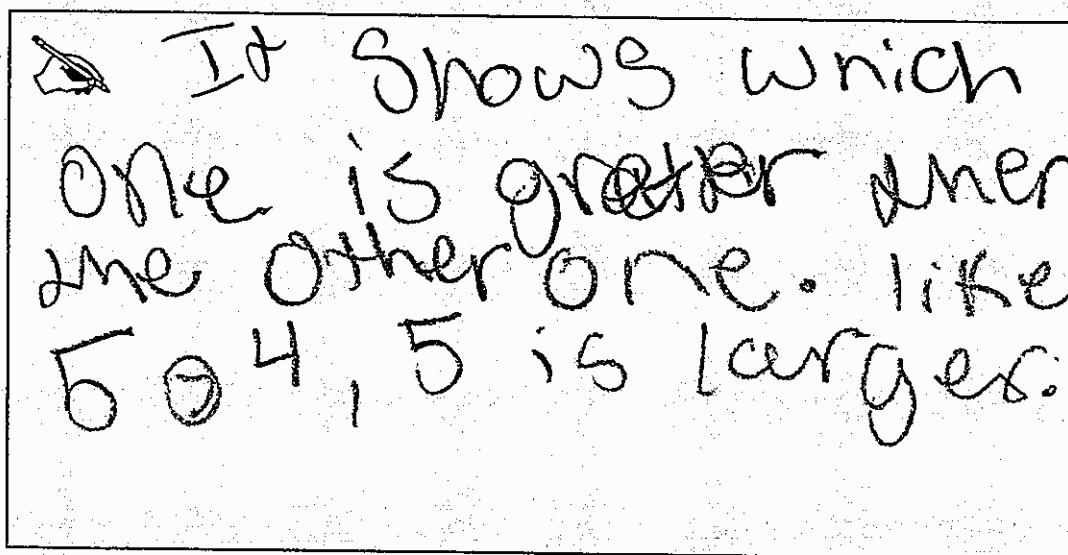 It shows which
one is greater then
the other one. like
5 > 4, 5 is larger.